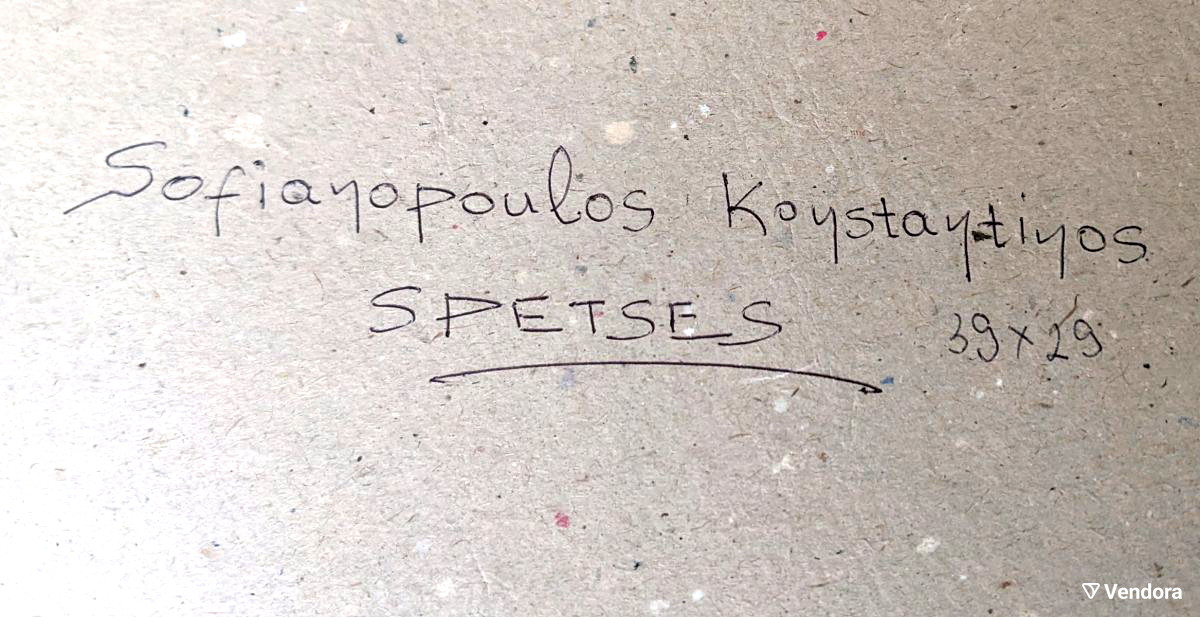 Sofiayopoulos Koystaytiyos
SPETSES
39x29
Vendora